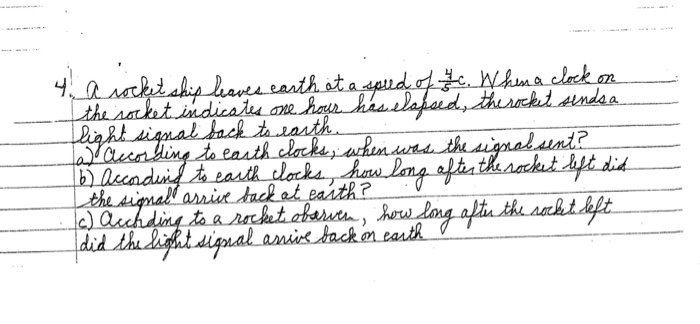 4. A rocket ship leaves earth at a speed of 4/5 c. When a clock on
the rocket indicates one hour has elapsed, the rocket sends a
light signal back to earth.
a) According to earth clocks, when was the signal sent?
b) According to earth clocks, how long after the rocket left did
the signal arrive back at earth?
c) According to a rocket observer, how long after the rocket left
did the light signal arrive back on earth